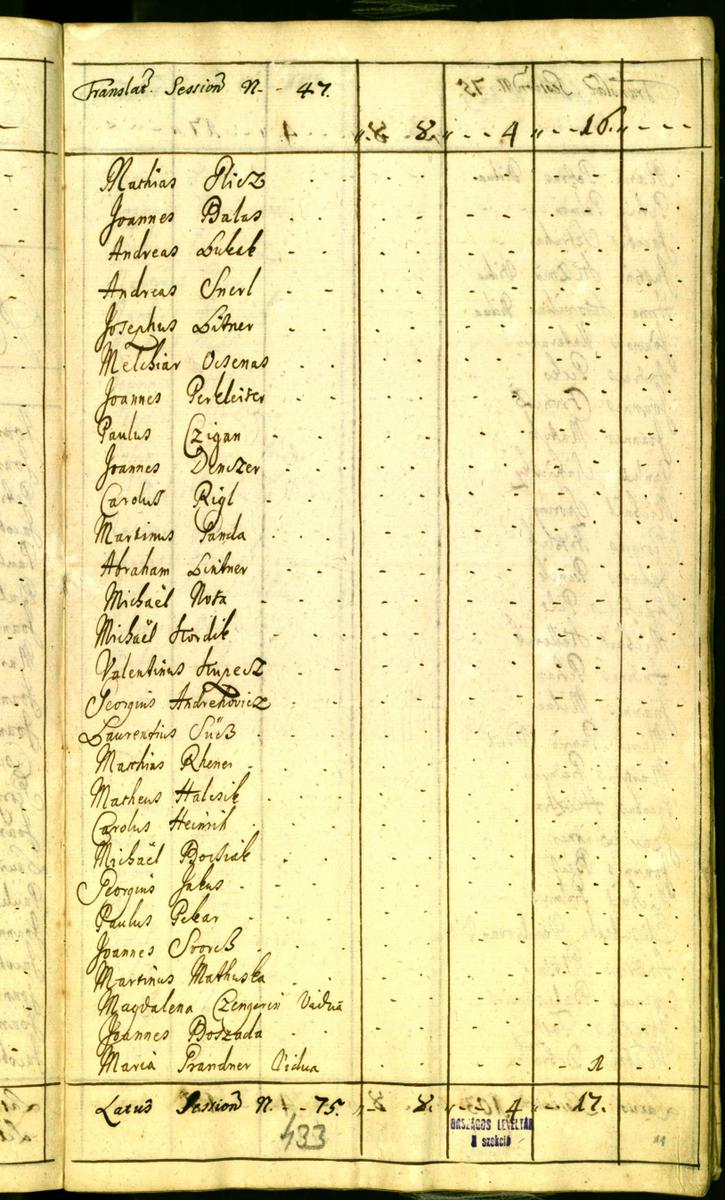 Translat. Session N. - 47. „. 8. 8. „ - - 4 „ - - 16. „ - - -
Mathias Flicz
Joannes Balas
Andreas Lukak
Andreas Snerl
Josephus Litner
Melchiar Ocsenas
Joannes Perkleiter
Paulus Czigan
Joannes Denczer
Carolus Rigl
Martinus Panda
Abraham Lintner
Michaël Nota
Michaël Hordik
Valentinus Kupecz
Georgius Andrekovicz
Laurentius Süß
Mathias Rhener
Matheus Halcsik
Carolus Heinrih
Michaël Bocsiak
Georgius Jakus
Paulus Pekar
Joannes Svorcß
Martinus Mathuska
Magdalena Czengerin Vidua
Joannes Boszada
Maria Prandner Vidua - 1
Latus Session N. - - 75. „ 8. 8. „ - - 4 „ - - 17.
433
ORSZÁGOS LEVÉLTÁR
szekció